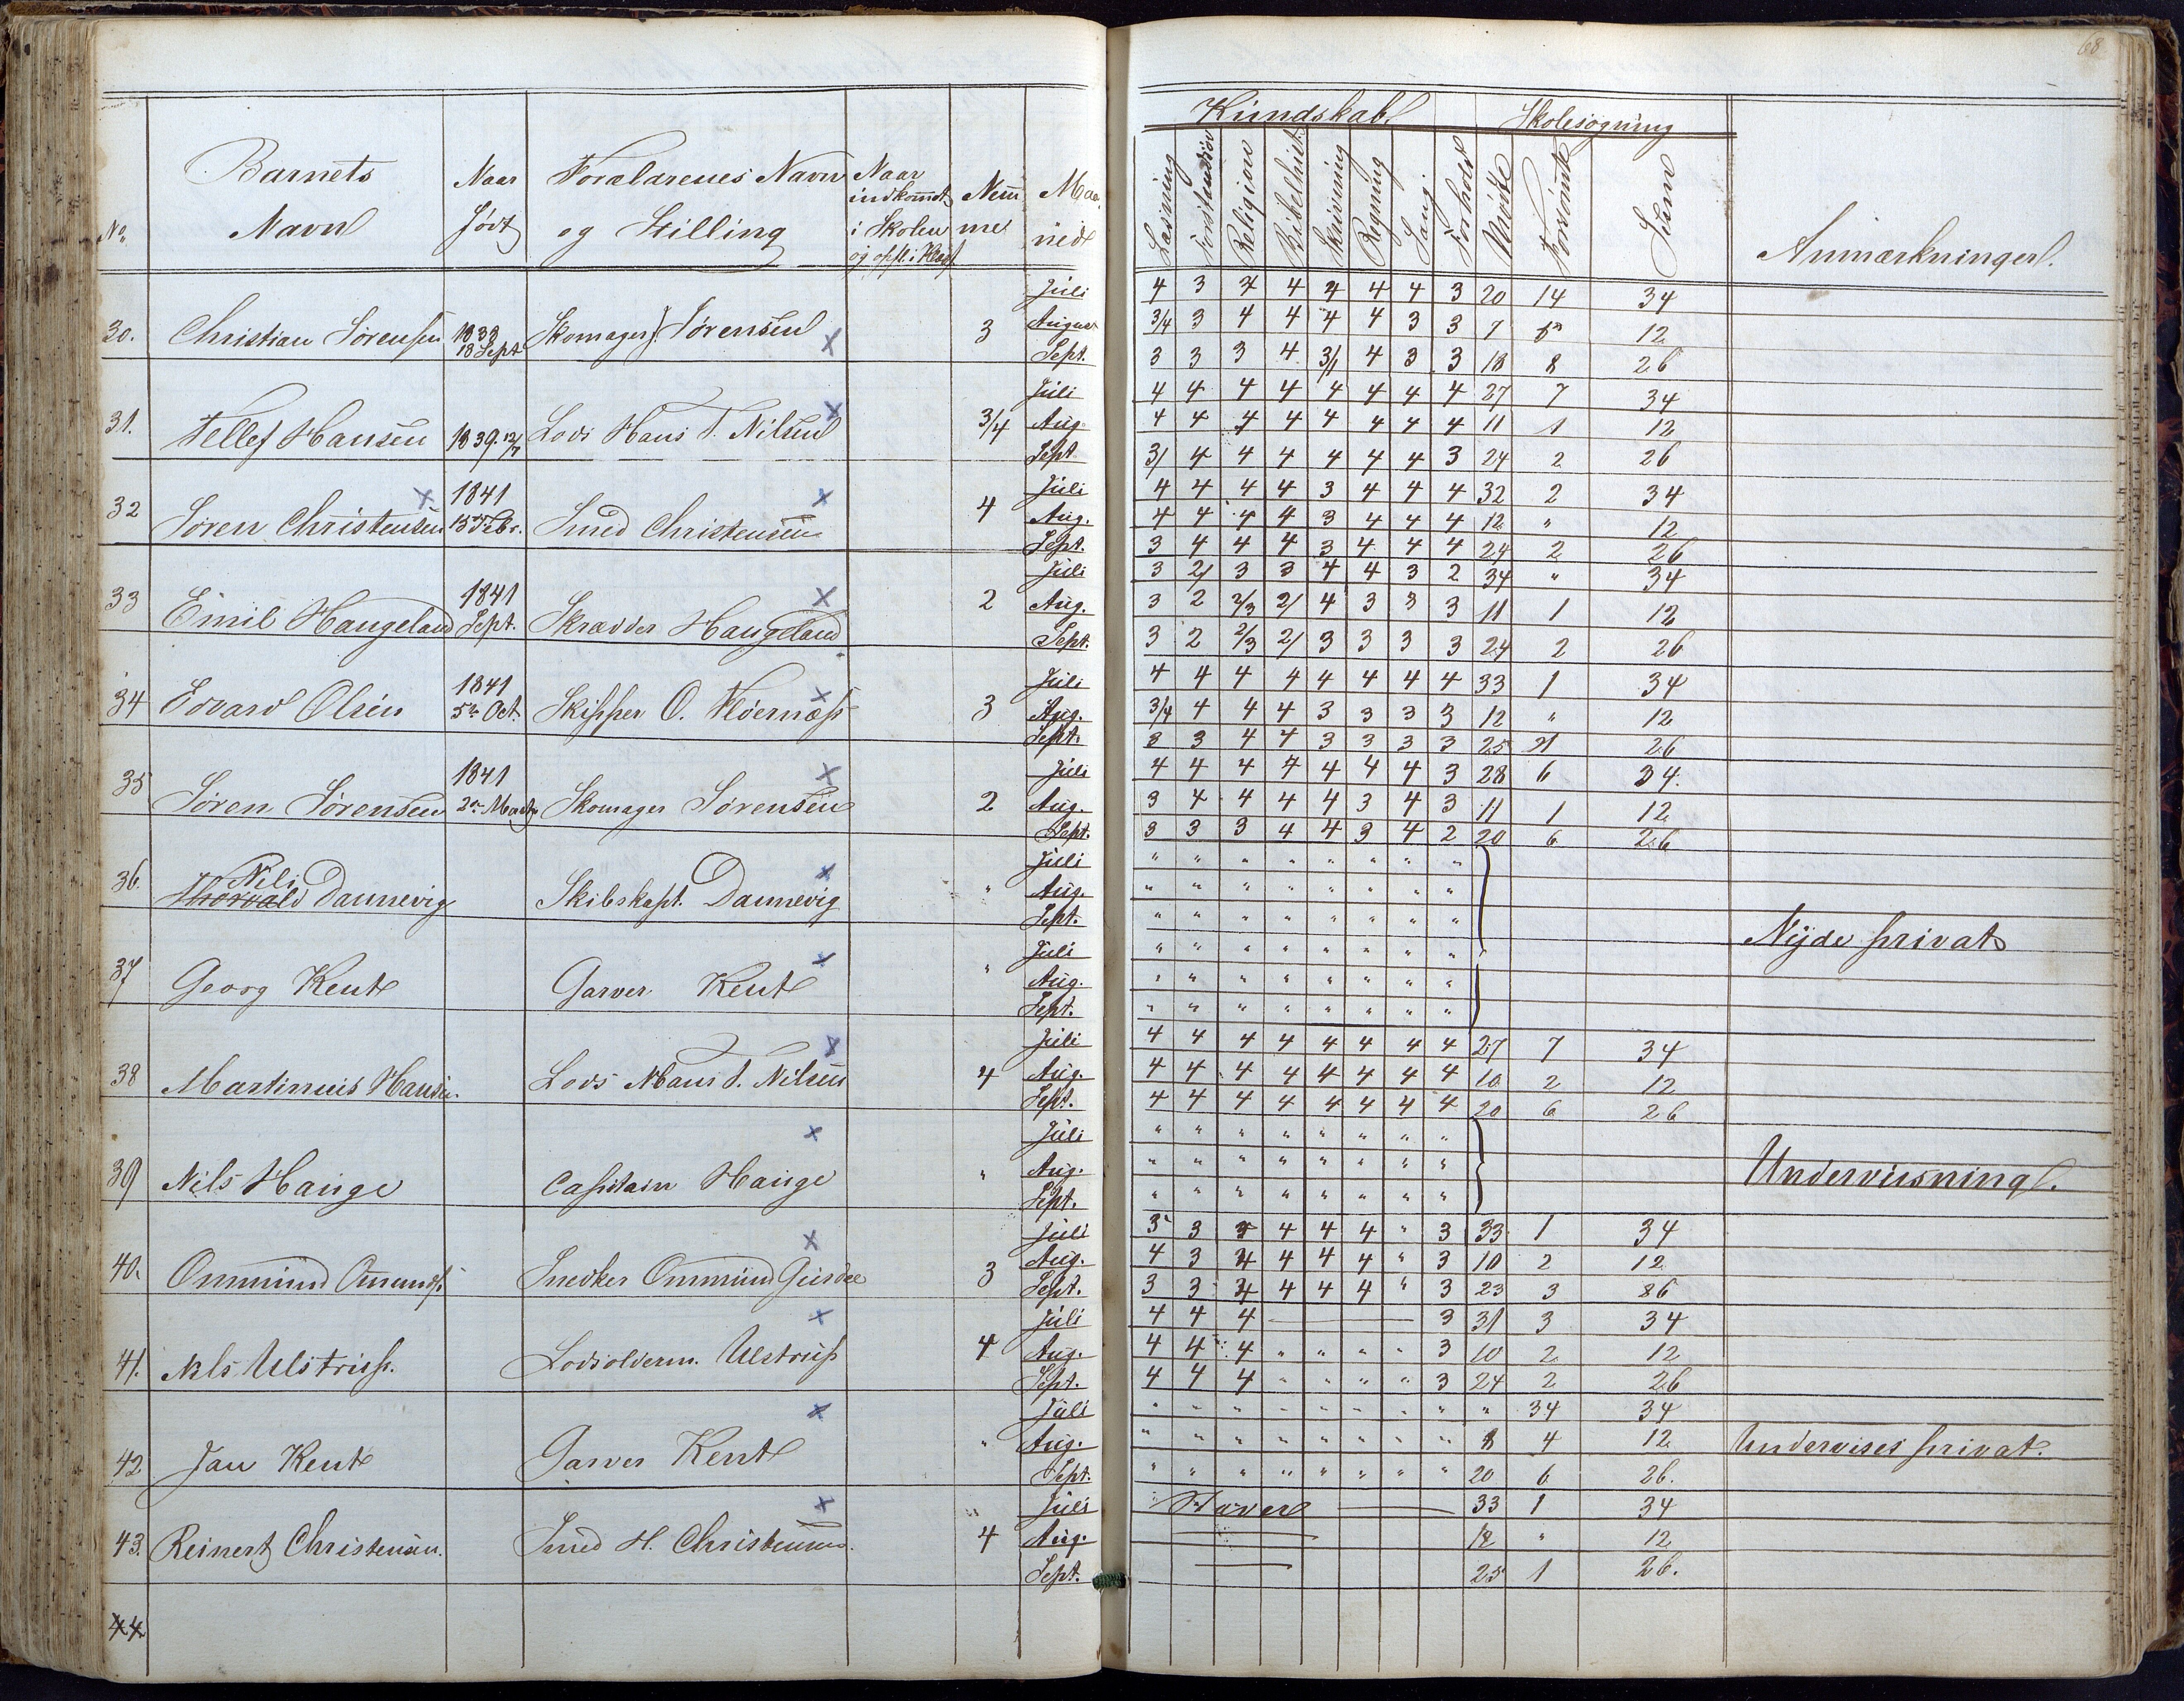 68
Kundskab. Skolesøgning
No. Barnets Navn Naar født Forældrenes Navn og Stilling Naar indkomt i Skolen og opfl. i Klasse Nemme Maaned Læsning Forstandsøv Religion Bibelhist. Skrivning Regning Sang. Forhold Mødte Forsømte Sum Anmærkninger.
Juli 4 3 4 4 4 4 4 3 20 14 34
30. Christian Sørensen 1838 18 Sept Skomager J. Sørensen 3 August 3/4 3 4 4 4 4 3 3 7 5 12
Sept. 3 3 3 4 3/ 4 3 3 18 8 26
Juli 4 4 4 4 4 4 4 4 27 7 34
31. Tellef Hansen 1839. 12/7 Lods Hans T. Nilsen 3/4 Aug. 4 4 4 4 4 4 4 4 11 1 12
Sept 3/ 4 4 4 4 4 4 3 24 2 26
Juli 4 4 4 4 3 4 4 4 32 2 34
32 Søren Christensen 1841 15de Febr. Smed Christensen 4 Aug. 4 4 4 4 3 4 4 4 12 " 12
Sept. 3 4 4 4 3 4 4 4 24 2 26
Juli 3 2/ 3 3 4 4 3 2 34 " 34
33 Emil Haugeland 1841 Sept. Skrædder Haugeland 2 Aug. 3 2 2/3 2/ 4 3 3 3 11 1 12
Sept. 3 2 2/3 2/ 3 3 3 3 24 2 26
Juli 4 4 4 4 4 4 4 4 33 1 34
34 Edvard Olsen 1841 5te Oct. Skipper O. 3 Aug. 3/4 4 4 4 3 3 3 3 12 " 12
Sept. 3 3 4 4 3 3 3 3 25 1 26
Juli 4 4 4 4 4 4 4 3 28 6 34.
35 Søren Sørensen 1841 2den Marts Skomager Sørensen 2 Aug. 3 4 4 4 4 3 4 3 11 1 12
Sept. 3 3 3 4 4 3 4 2 20 6 26
Juli " " " " " " " "
36. Thorvald Nils Dannevig Skibskapt. Dannevig " Aug. " " " " " " " "
Sept. " " " " " " " " Nyde privat
Juli " " " " " " " "
37 Georg Kent Garver Kent " Aug. " " " " " " " "
Sept. " " " " " " " "
Juli 4 4 4 4 4 4 4 4 27 7 34
38 Martinius Hansen. Lods Hans T. Nilsen 4 Aug. 4 4 4 4 4 4 4 4 10 2 12
Sept. 4 4 4 4 4 4 4 4 20 6 26
Juli " " " " " " " "
39 Nils Hauge Capitain Hauge " Aug. " " " " " " " " Underviisning.
Sept. " " " " " " " "
Juli 3 3 3 4 4 4 " 3 33 1 34
40. Ommund Omunds. Snedker Ommund Gusdal 3 Aug. 4 3 4 4 4 4 " 3 10 2 12
Sept. 3 3 4 4 4 4 " 3 23 3 86
Juli 4 4 4 — 3 31 3 34
41. Nils Ulstrup. Lodsolderm. Ulstrup 4 Aug. 4 4 4 " " " " 3 10 2 12
Sept. 4 4 4 " " " " 3 24 2 26
Juli " " " " " " " " " 34 34
42 Jan Kent Garver Kent " Aug. " " " " " " " " 8 4 12 Undervises privat.
Sept. " " " " " " " " 20 6 26.
Juli Staver — 33 1 34
43. Reinert Christensen. Smed H. Christensen. 4 Aug. — 12 " 12
Sept. — 25 1 26.
44